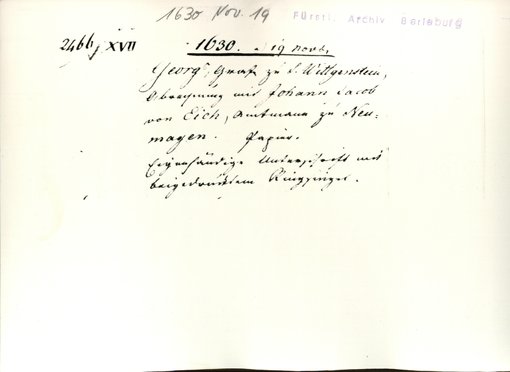 1630 Nov. 19
Fürstl. Archiv Berleburg
2466, XVII
1630. 19 Novb.
Georg, Graf zu S. Wittgenstein,
Abrechnung mit Johann Jacob
von Eich, Amtmann zu Neu-
magen. Papier.
Eigenhändige Unterschrift mit
beigedrücktem Ringsiegel.